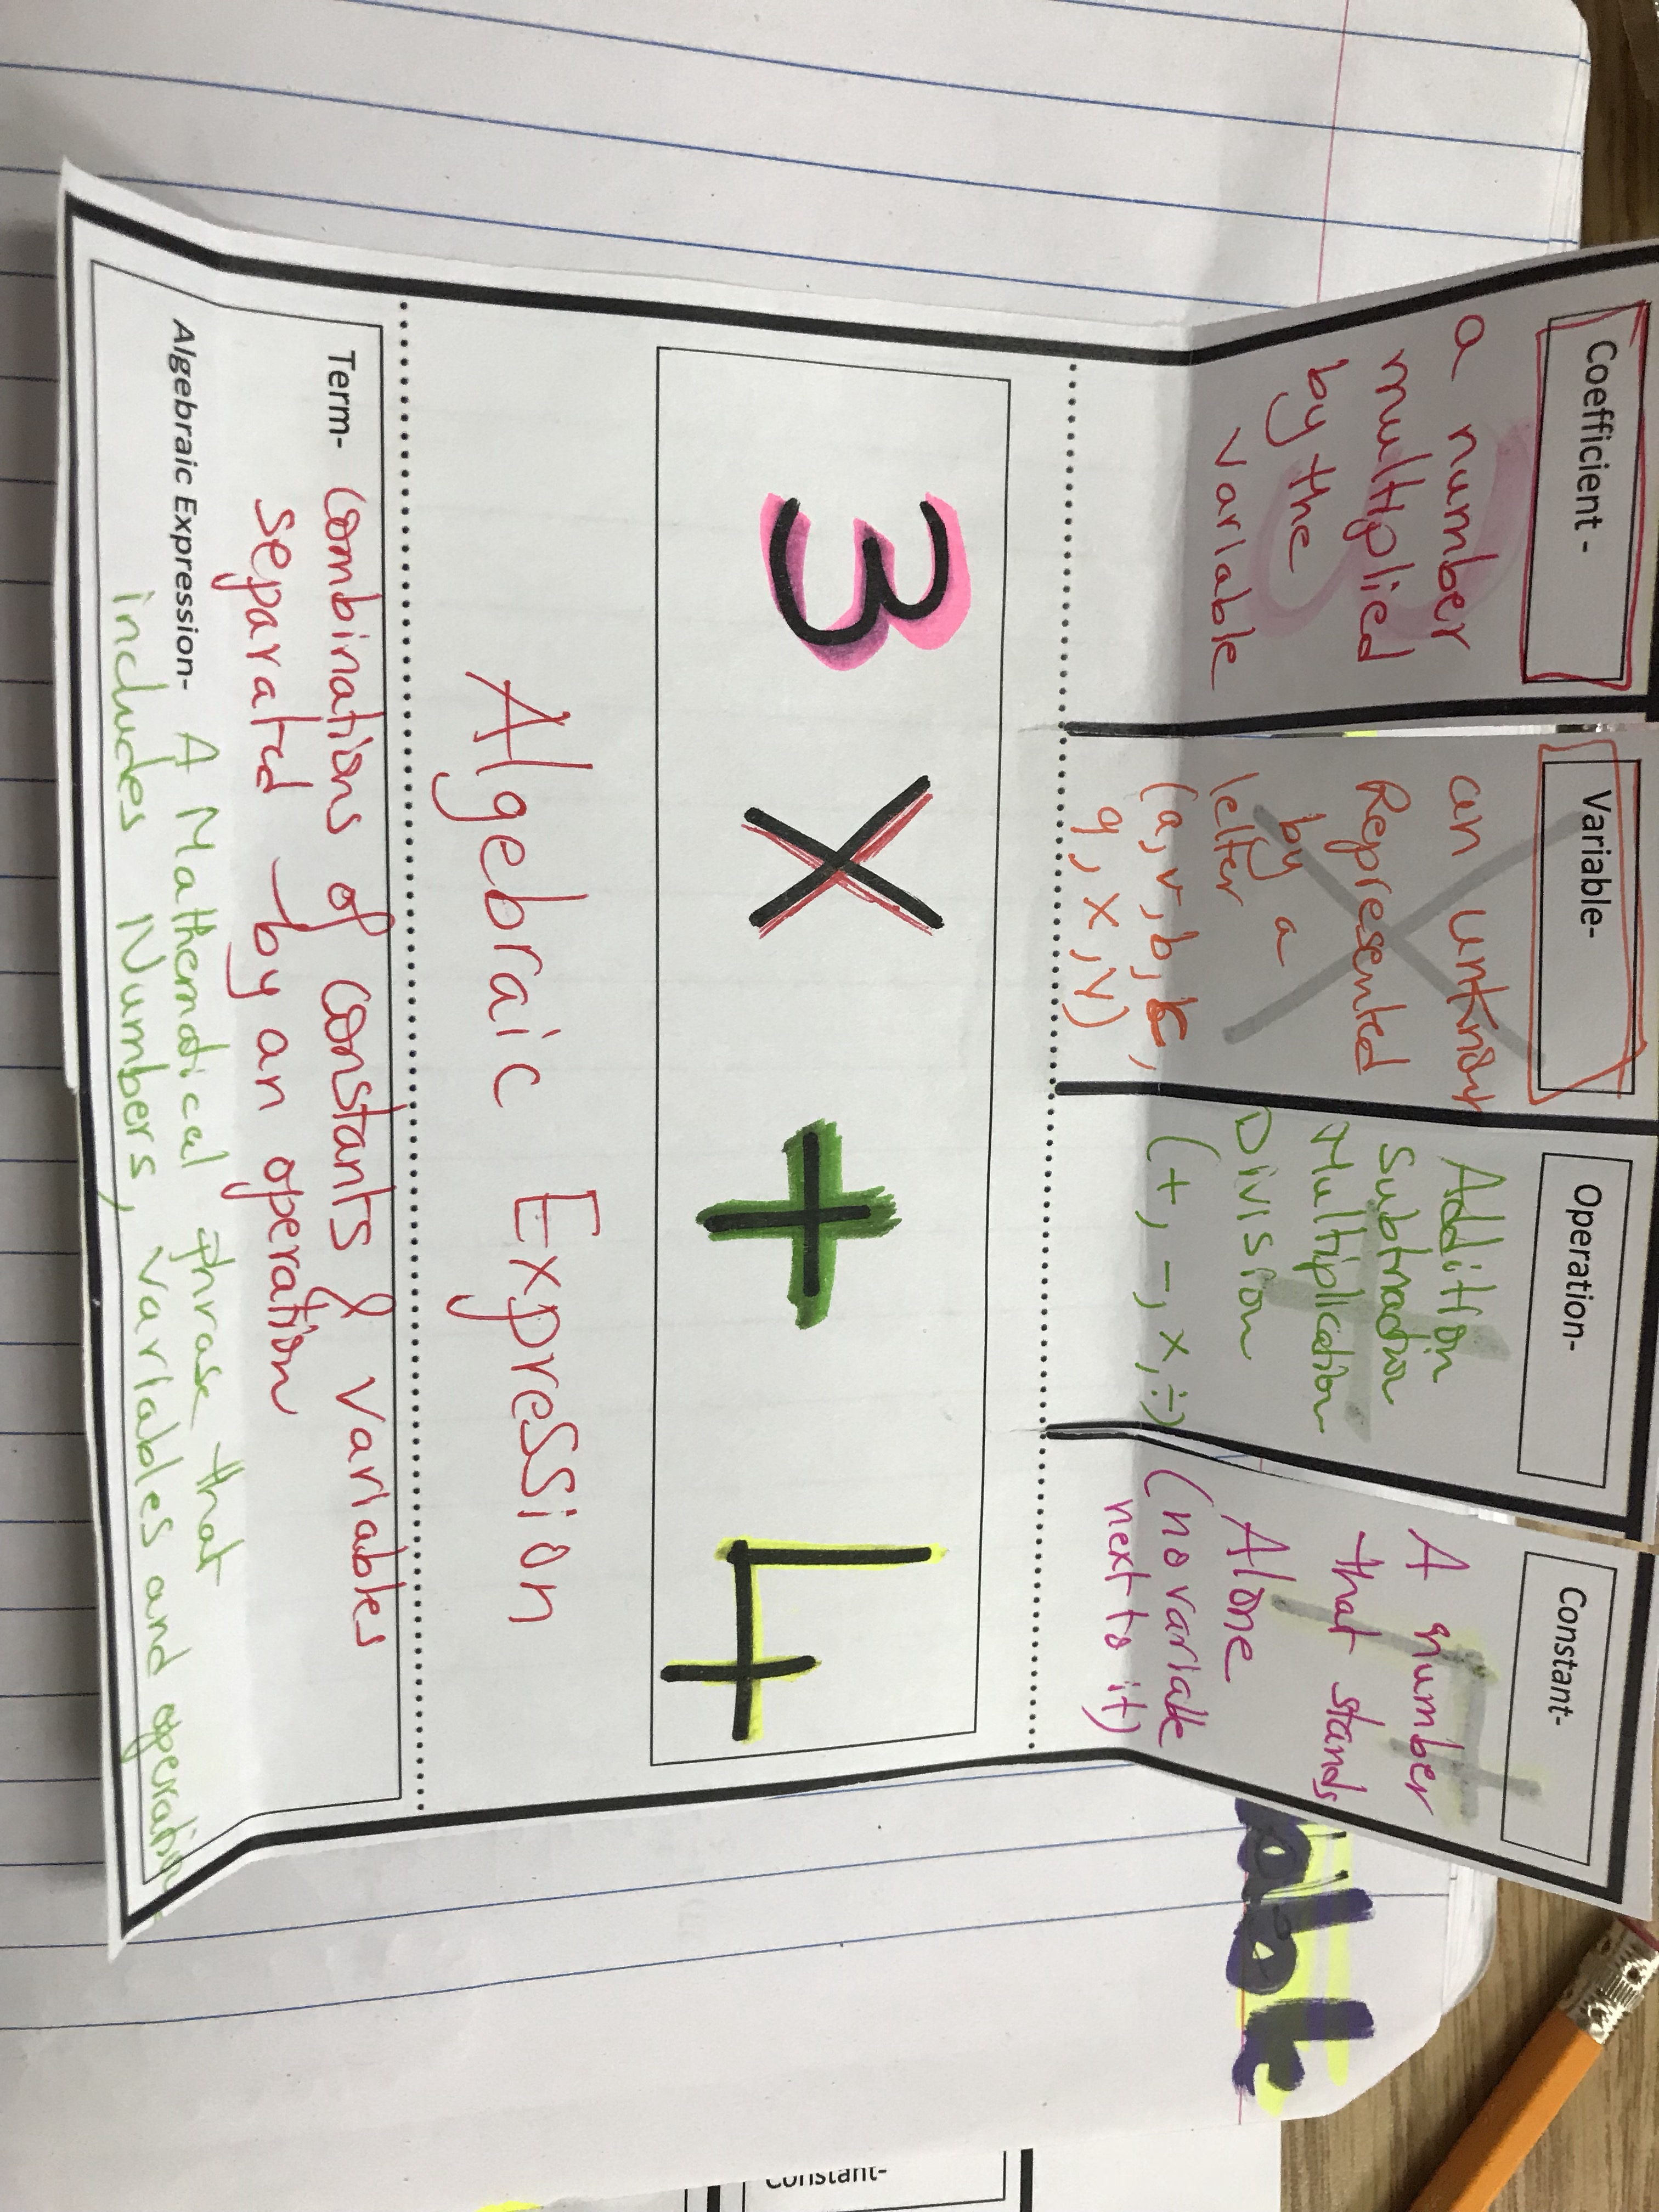 Coefficient -
a number
multiplied
by the
variable
Variable-
an unknown
Represented
by a
letter
(a, v, b, k,
q, x, y)
Operation-
Addition
Subtraction
Multiplication
Division
(+, -, x, ÷)
Constant-
A number
that stands
Alone
(no variable
next to it)
3 X + 4
Algebraic Expression
Term- Combinations of constants & variables
separated by an operation
Algebraic Expression- A Mathematical Phrase that
includes Numbers, variables and operation
Constant-